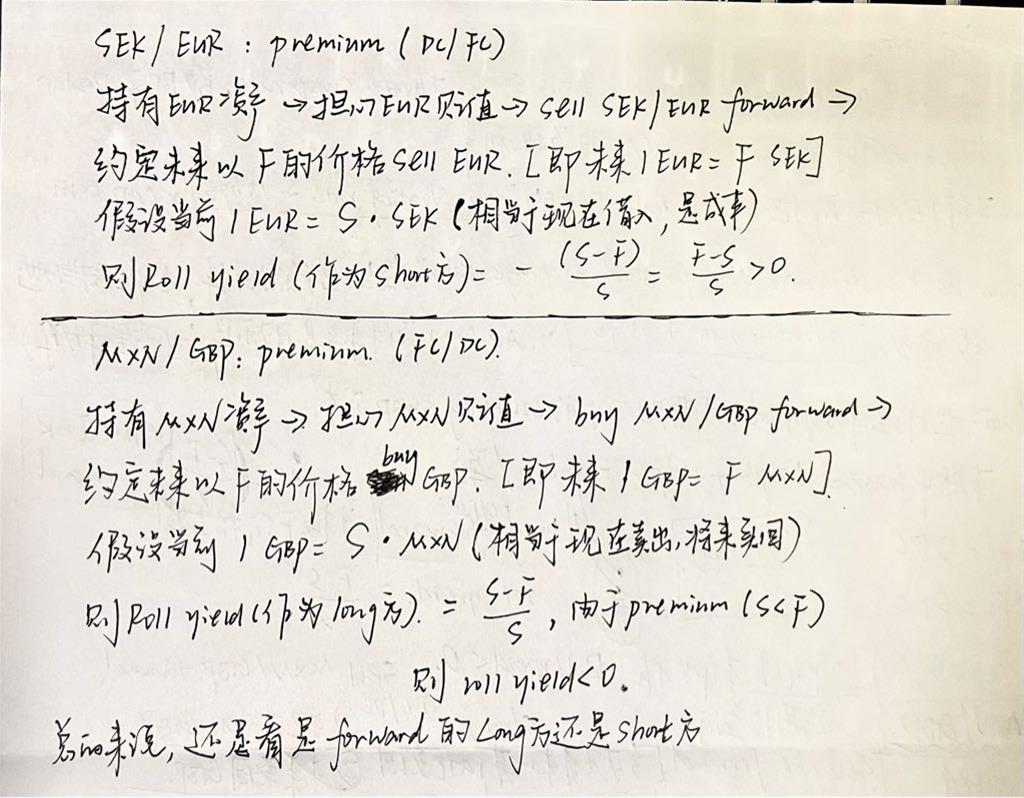 SEK/EUR : premium (DC/FC)
持有EUR资产→担心EUR贬值→sell SEK/EUR forward→
约定未来以F的价格sell EUR. [即未来1EUR= F SEK]
假设当前1EUR= S·SEK(相当于现在借入,是成本)
则Roll yield(作为short方)= - (S-F)/S = F-S/S >0.
MXN/GBP: premium. (FC/DC).
持有MXN资产→担心MXN贬值→buy MXN/GBP forward→
约定未来以F的价格buy GBP. [即未来1GBP= F MXN].
假设当前1 GBP= S·MXN(相当于现在卖出,将来买回)
则Roll yield(作为long方). = S-F/S , 由于premium(S<F)
则roll yield<0.
总的来说,还是看是forward的Long方还是short方